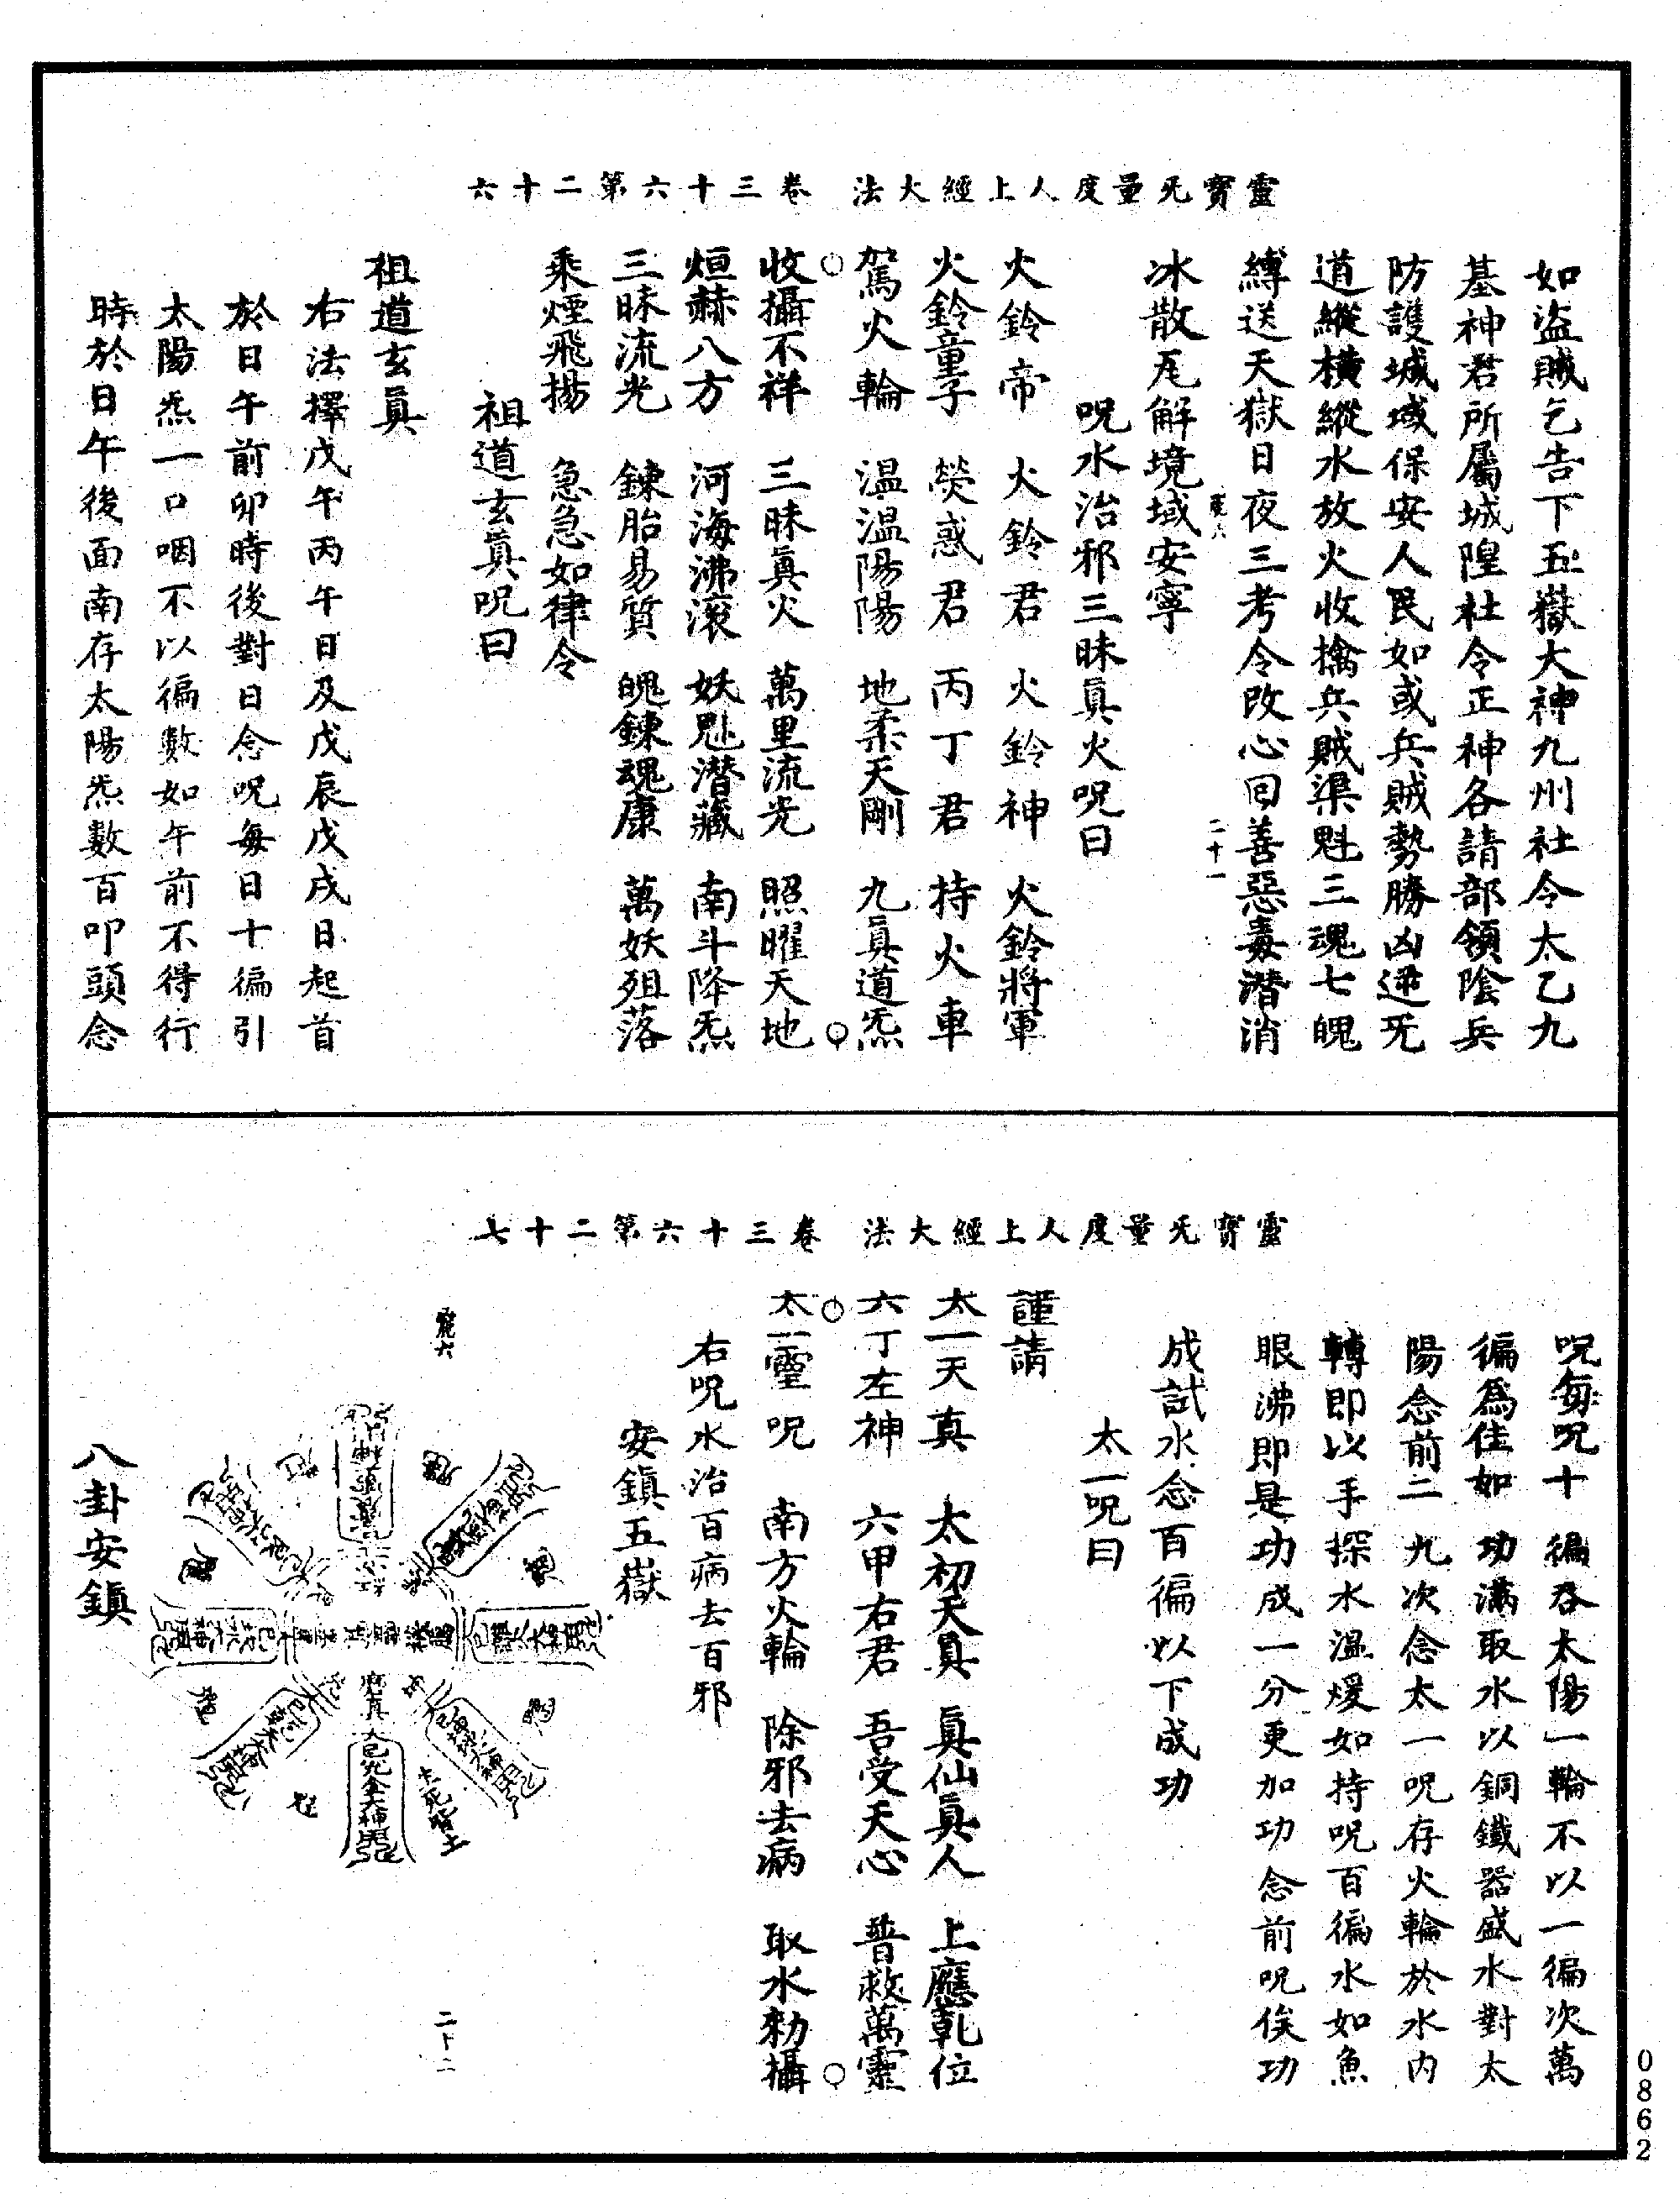 靈寶旡量度人上經大法　卷三十六第二十六
如盜賊乞告下五嶽大神九州社令太乙九
基神君所屬城隍社令正神各請部領陰兵
防護城域保安人民如或兵賊勢勝凶逆旡
道縱橫縱水放火收擒兵賊渠魁三魂七魄
縛送天獄日夜三考令改心回善惡毒潛消
二十一
冰散瓦解境域安寧
呪水治邪三昧眞火呪曰
火鈴帝　火鈴君　火鈴神　火鈴將軍
火鈴童子　熒惑君　丙丁君　持火車
駕火輪　温温陽陽　地柔天剛　九眞道炁
收攝不祥　三昧眞火　萬里流光　照曜天地
烜赫八方　河海沸滚　妖魁潛藏　南斗降炁
三昧流光　鍊胎易質　魄鍊魂康　萬妖殂落
乘煙飛揚　急急如律令
祖道玄眞呪曰
祖道玄眞
右法擇戊午丙午日及戊辰戊戌日起首
於日午前卯時後對日念呪每日十徧引
太陽炁一口咽不以徧數如午前不得行
時於日午後面南存太陽炁數百叩頭念
靈寶旡量度人上經大法　卷三十六第二十七
呪每呪十徧吞太陽一輪不以一徧次萬
徧爲佳如功滿取水以銅鐵器盛水對太
陽念前二九次念太一呪存火輪於水内
轉即以手探水温煖如持呪百徧水如魚
眼沸即是功成一分更加功念前呪俟功
成試水念百徧以下成功
太一呪曰
謹請
太一天真　太初天眞　眞仙眞人　上應乾位
六丁左神　六甲右君　吾受天心　普救萬靈
太一靈呪　南方火輪　除邪去病　取水勑攝
右呪水治百病去百邪
安鎮五嶽
二十二
八卦安鎮
0862